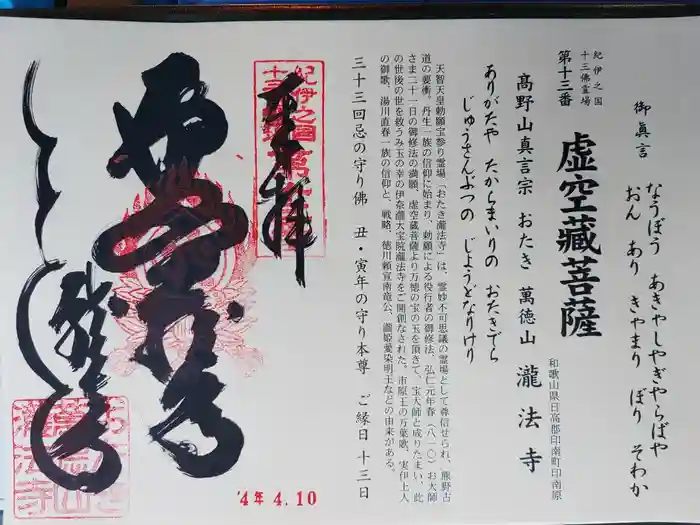 御眞言
なうぼう あきゃしゃぎゃらばや
おん あり きゃまり ぼり そわか
紀伊之国
十三佛霊場
第十三番
虚空藏菩薩
和歌山県日高郡印南町印南原
髙野山真言宗 おたき 萬徳山 瀧法寺
ありがたや たからまいりの おたきでら
じゅうさんぶつの じょうどなりけり
天智天皇勅願宝参り霊場「おたき瀧法寺」は、霊妙不可思議の霊場として尊信せられ、熊野古
道の要衝。丹生一族の信仰に始まり、勅願による役行者の御修法、弘仁元年春(八一〇)お大師
さま二十一日の御修法の満願、虚空蔵菩薩より万徳の宝の玉を頂きて、宝大師と成りたまい、此
の世後の世を救うみ玉の幸の伊奈瀧大宝院瀧法寺をご開創なされた。市原王の万葉歌、実伊上人
の御歌、湯川直春一族の信仰と、戦略、徳川頼宣南竜公、瀧姫愛染明王などの由来がある。
三十三回忌の守り佛 丑・寅年の守り本尊 ご縁日 十三日
奉拝
紀伊之国
十三佛霊場
虚空蔵
瀧法寺
'4年 4.10